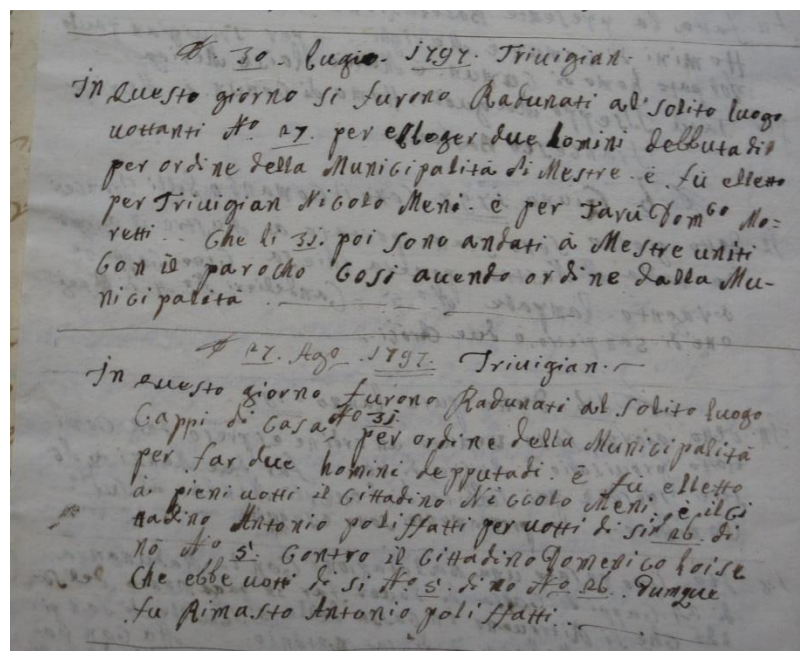 A 30. lugio. 1797. Trivigian.
In questo giorno si furono Radunati al solito luogo
uottanti No. 27. per elleger due homini debbutadi
per ordine della Municipalità di Mestre. è fù elletto
per Trivigian Nicolo Meni. è per Tarù Domco Mo=
retti. Che li 31. poi sono andati à Mestre uniti
Con il parocho Cosi auendo ordine dalla Mu-
nicipalità
A 27. Ago. 1797. Trivigian.
In questo giorno furono Radunati al solito luogo
Cappi di Casa No 31. per ordine della Municipalità
per far due homini depputadi. è fu elletto
à pieni uotti il Cittadino Niccolo Meni. è il Ci
tadino Antonio poliffatti per uotti di si No 26. di
nò No 5. Contro il Cittadino Domenico
Che ebbe uotti di si No 5. di no No 26. Dunque
fu Rimasto Antonio poliffatti.